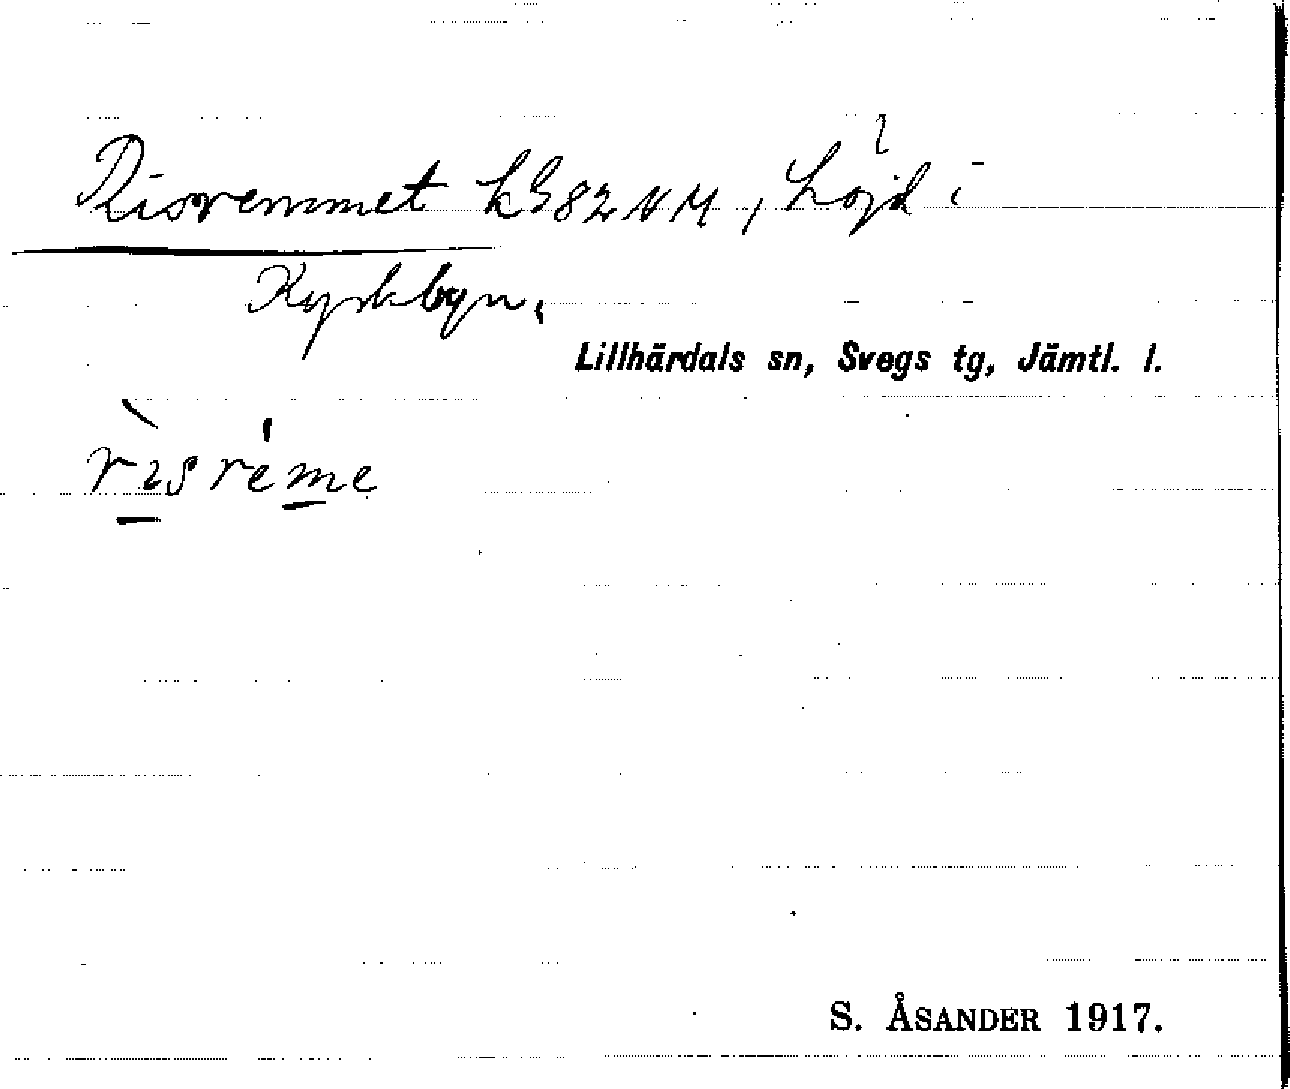 Risremmet kG82NM, Löjd i
Kyrkbyn.
Lillhärdals sn, Svegs tg, Jämtl. l.
rìs réme
S. ÅSANDER 1917.